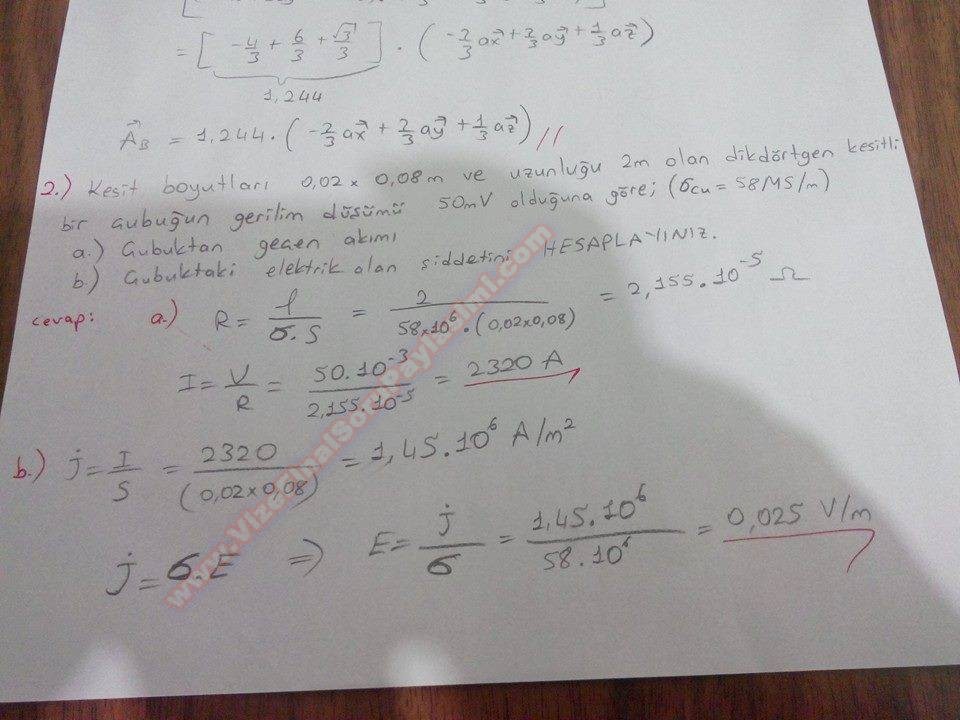 = [ -4/3 + 6/3 + √3/3 ] . ( -2/3 ax⃗ + 2/3 ay⃗ + 1/3 az⃗ )
1,244
A⃗B = 1,244 . ( -2/3 ax⃗ + 2/3 ay⃗ + 1/3 az⃗ ) //
2.) Kesit boyutları 0,02 x 0,08m ve uzunluğu 2m olan dikdörtgen kesitli
bir Çubuğun gerilim düşümü 50mV olduğuna göre; (σcu = 58MS/m)
a.) Çubuktan geçen akımı
b.) Çubuktaki elektrik alan şiddetini HESAPLAYINIZ.
cevap: a.) R = l/σ.S = 2/58x10⁶.(0,02x0,08) = 2,155.10⁻⁵ Ω
I = V/R = 50.10⁻³/2,155.10⁻⁵ = 2320 A
b.) j = I/S = 2320/(0,02x0,08) = 1,45.10⁶ A/m²
j = σ.E ⇒ E = j/σ = 1,45.10⁶/58.10⁶ = 0,025 V/m
www.VizeFinalSoruPaylasimi.com